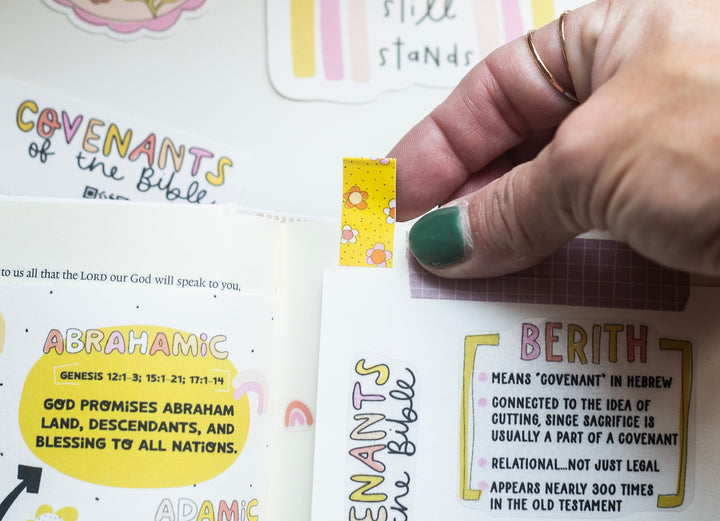 still
stands
COVENANTS
of the Bible
to us all that the LORD our God will speak to you,
ABRAHAMIC
GENESIS 12:1-3; 15:1-21; 17:1-14
GOD PROMISES ABRAHAM
LAND, DESCENDANTS, AND
BLESSING TO ALL NATIONS.
ADAMIC
VENANTS
the Bible
BERITH
MEANS "COVENANT" IN HEBREW
CONNECTED TO THE IDEA OF
CUTTING, SINCE SACRIFICE IS
USUALLY A PART OF A COVENANT
RELATIONAL...NOT JUST LEGAL
APPEARS NEARLY 300 TIMES
IN THE OLD TESTAMENT